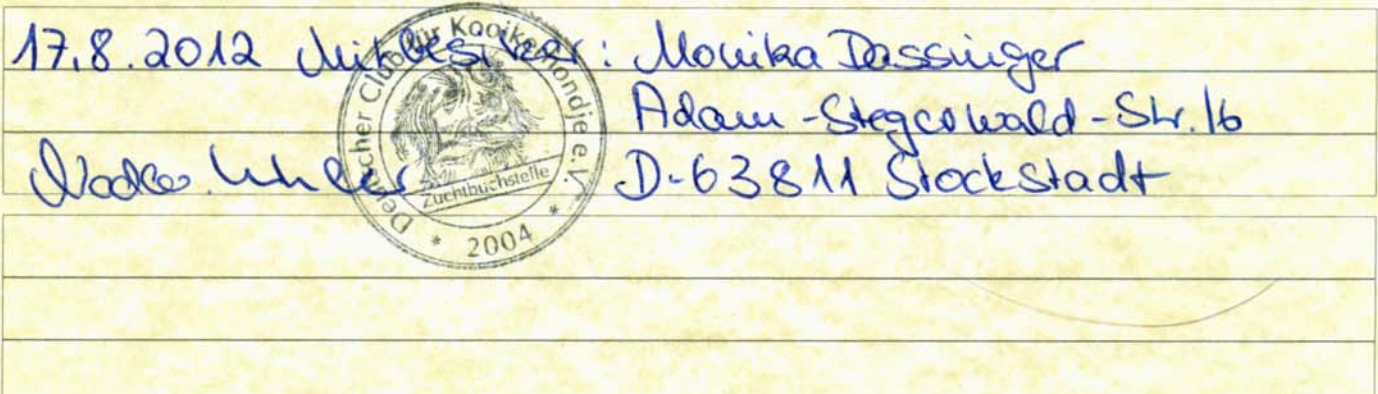 17.8.2012 Mitbesitzer: Monika Dassinger
Adam-Stegerwald-Str. 16
D-63811 Stockstadt
Deutscher Club für Kooikerhondje e.V.
Zuchtbuchstelle
* 2004 *